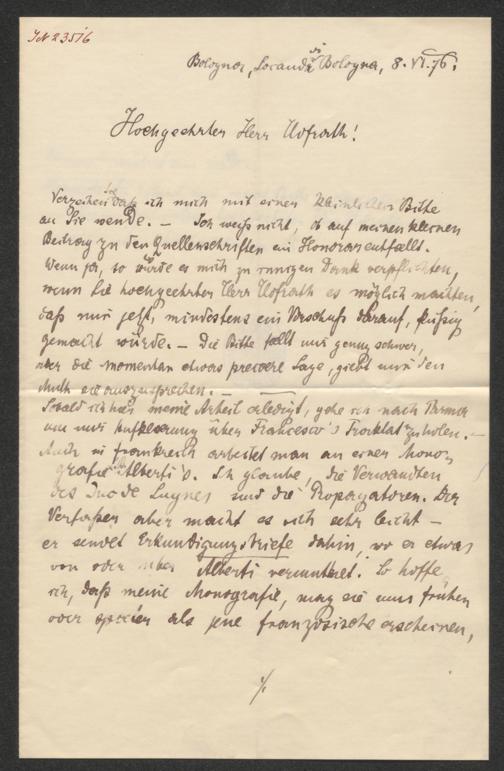 JN 23516
Bologna, Locanda di Bologna, 8. VI. 76.
Hochgeehrter Herr Hofrath!
Verzeihen Sie daß ich mich mit einer kleinlichen Bitte
an Sie wende. — Ich weiß nicht, ob auf meinen kleinen
Beitrag zu den Quellenschriften ein Honorar entfällt.
Wenn ja, so würde es mich zu innigem Dank verpflichten,
wenn Sie hochgeehrter Herr Hofrath es möglich machten,
daß mir jetzt, mindestens ein Vorschuß darauf, flüssig
gemacht würde. — Die Bitte fällt mir genug schwer,
aber die momentan etwas precäre Lage, giebt mir den
Muth sie auszusprechen. —
Sobald ich hier meine Arbeit erledigt, gehe ich nach Parma
um mir Aufklärung über Francesco's Trocklat zu holen. —
Auch in Frankreich arbeitet man an einer Mono-
grafie Alberti's. Ich glaube, die Verwandten
des Duc de Luynes sind die Propagatoren. Der
Verfasser aber macht es sich sehr leicht —
er sendet Erkundigungsbriefe dahin, wo er etwas
von oder über Alberti vermuthet. So hoffe
ich, daß meine Monografie, mag sie nun früher
oder später als jene französische erscheinen,
./.